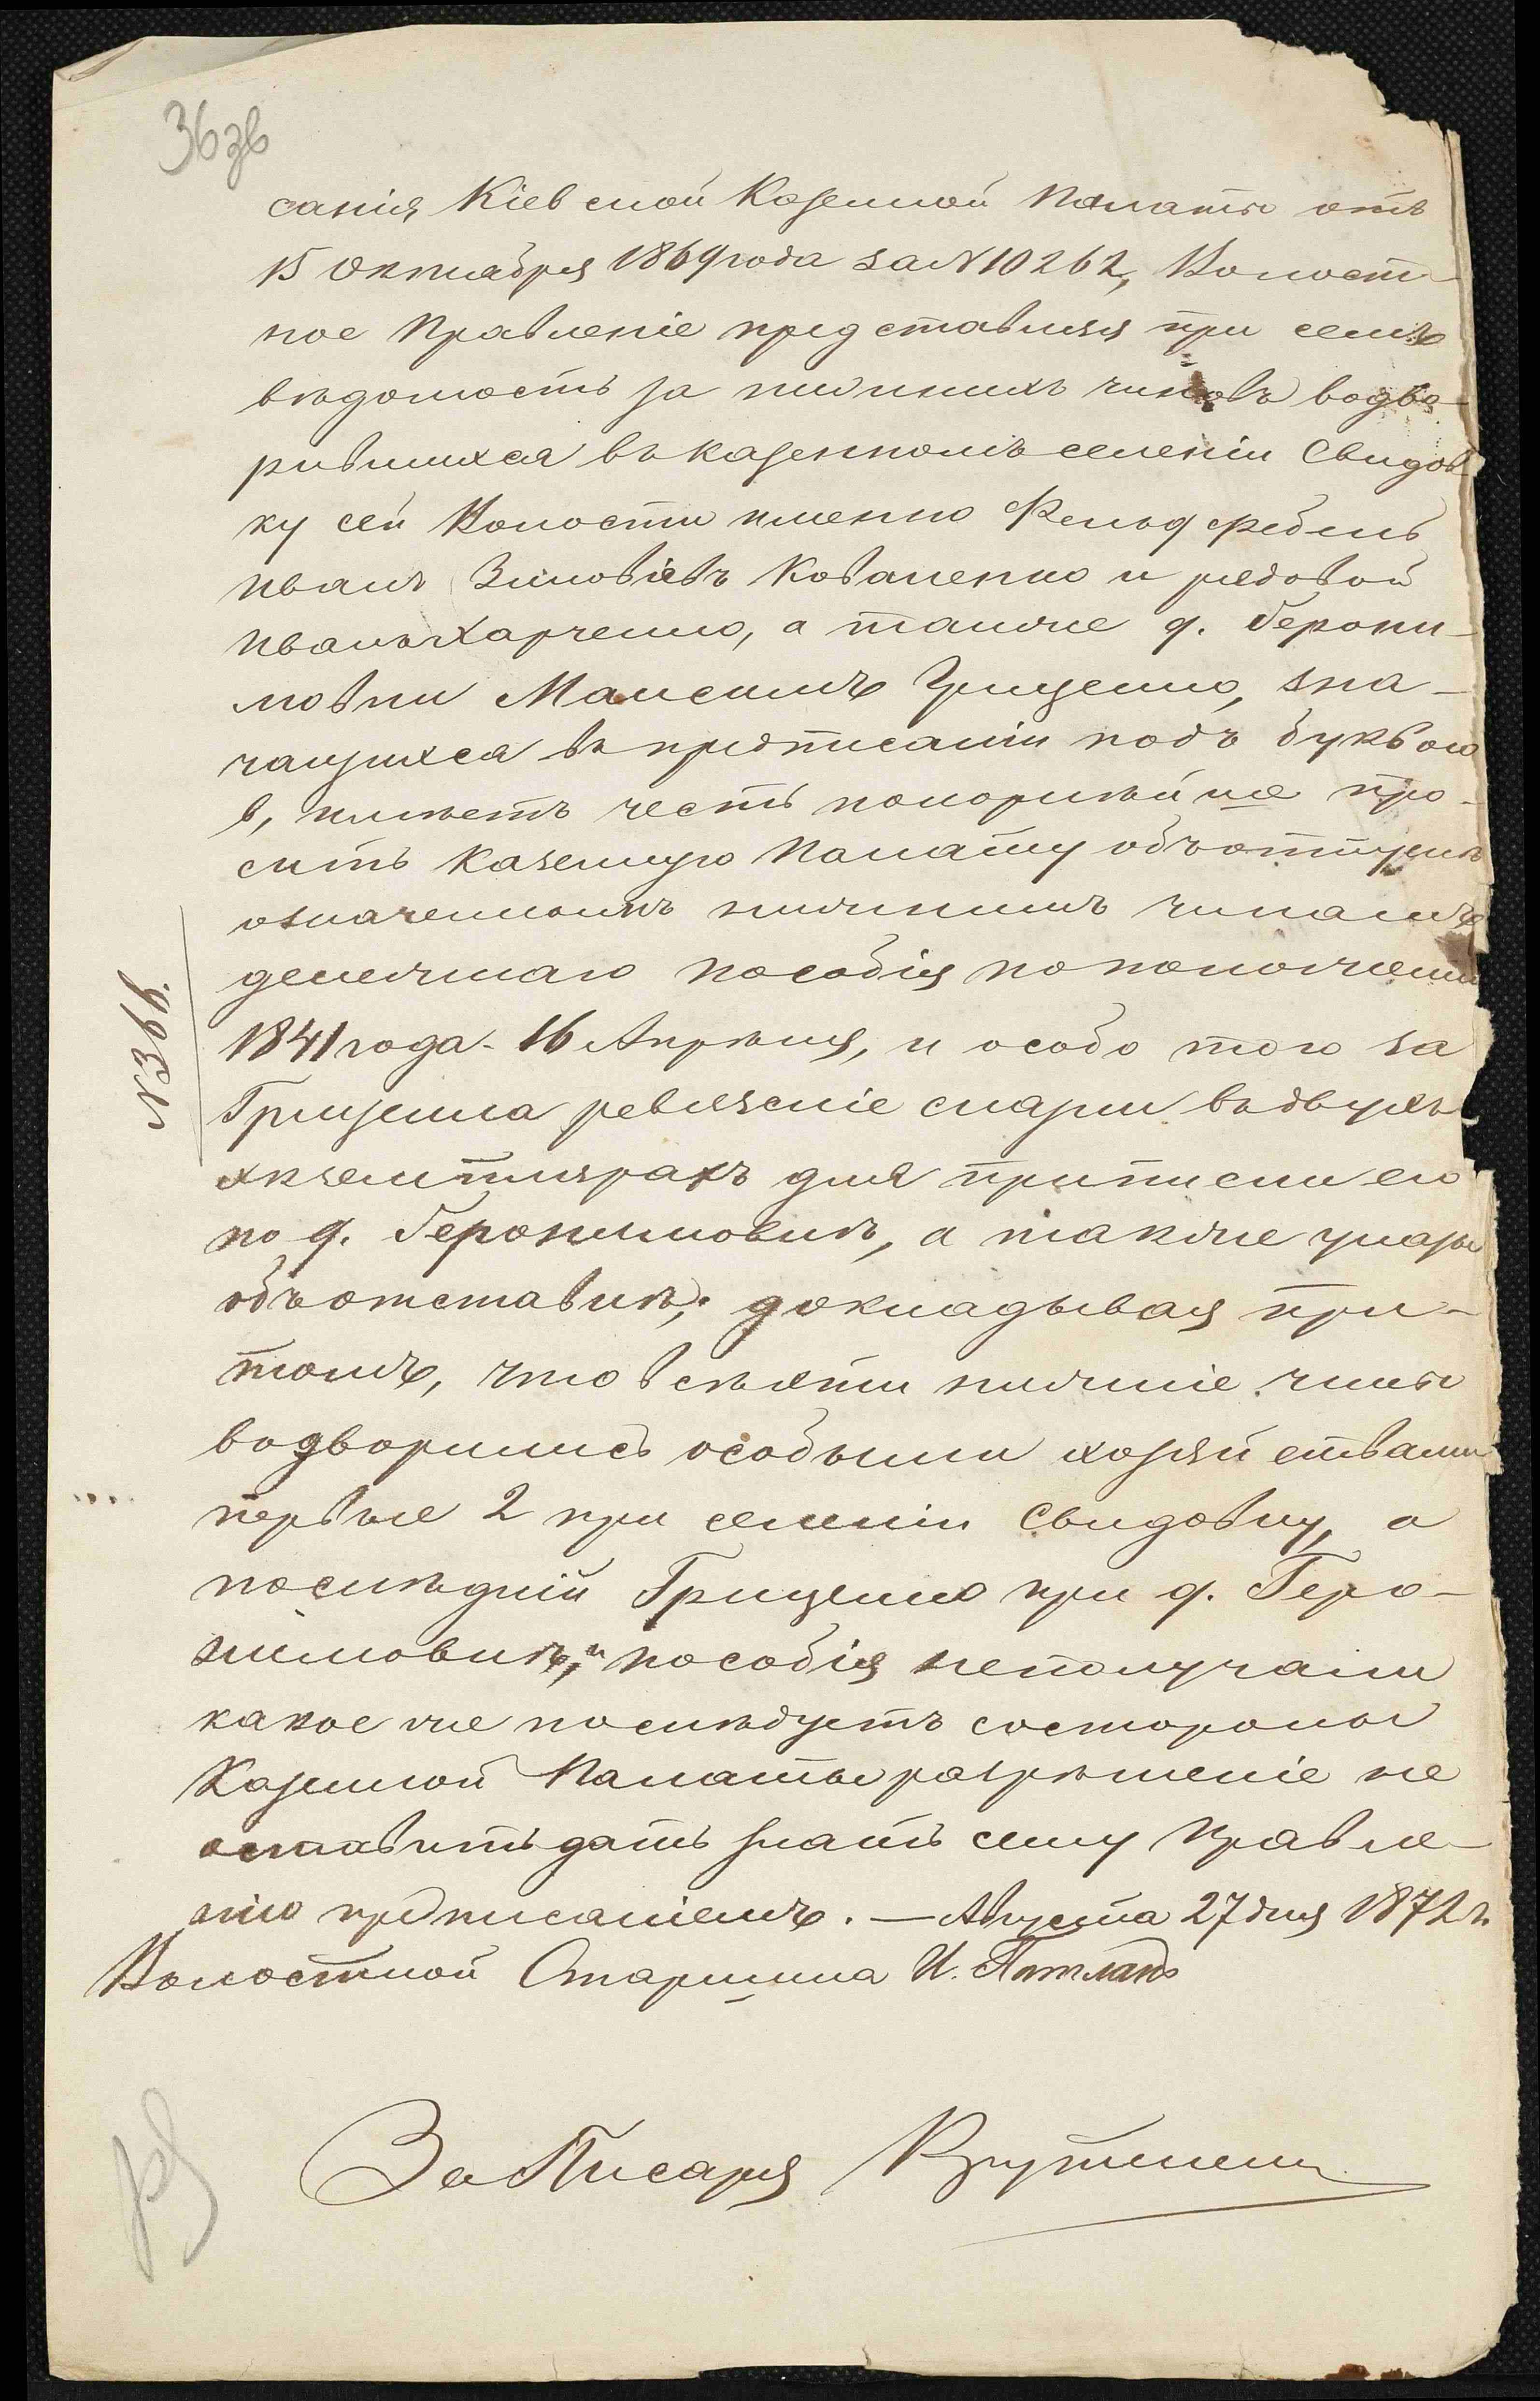 36 зв
санія Кіевской Казенной Палаты отъ
15 Октября 1869 года за N 10262, Волост-
ное Правленіе представляя при семъ
вѣдомость за нижнихъ чиновъ водво-
рившихся въ казенномъ селеніи Свидов-
ку сей Волости именно Фельдфебель
Иванъ Зиновіевъ Коваленко и рядовой
Иванъ Харченко, а также д. Герони-
мовки Максимъ Грищенко, зна-
чащихся въ предписаніи подъ буквою
в, имѣетъ честь покорнѣйше про-
сить Казенную Палату объ отпускѣ
означеннымъ нижнимъ чинамъ
денежнаго пособія по положенію
1841 года - 16 Апрѣля, и особо того за
Грищенка ревизскіе сказки въ двухъ
экземплярахъ для приписки его
по д. Геронимовкѣ, а также указы
объ отставкѣ; докладывая при-
томъ, что всѣ эти нижніе чины
водворились особыми хозяйствами
первые 2 при селеніи Свидовку, а
послѣдній Грищенко при д. Геро-
нимовкѣ, и пособія неполучали
какое же послѣдуетъ состороны
Казенной Палаты разрѣшеніе не
оставить дать знать сему Правле-
нію предписаніемъ. — Августа 27 дня 1872 г.
Волостной Старшина И.
За Писаря
N 366.